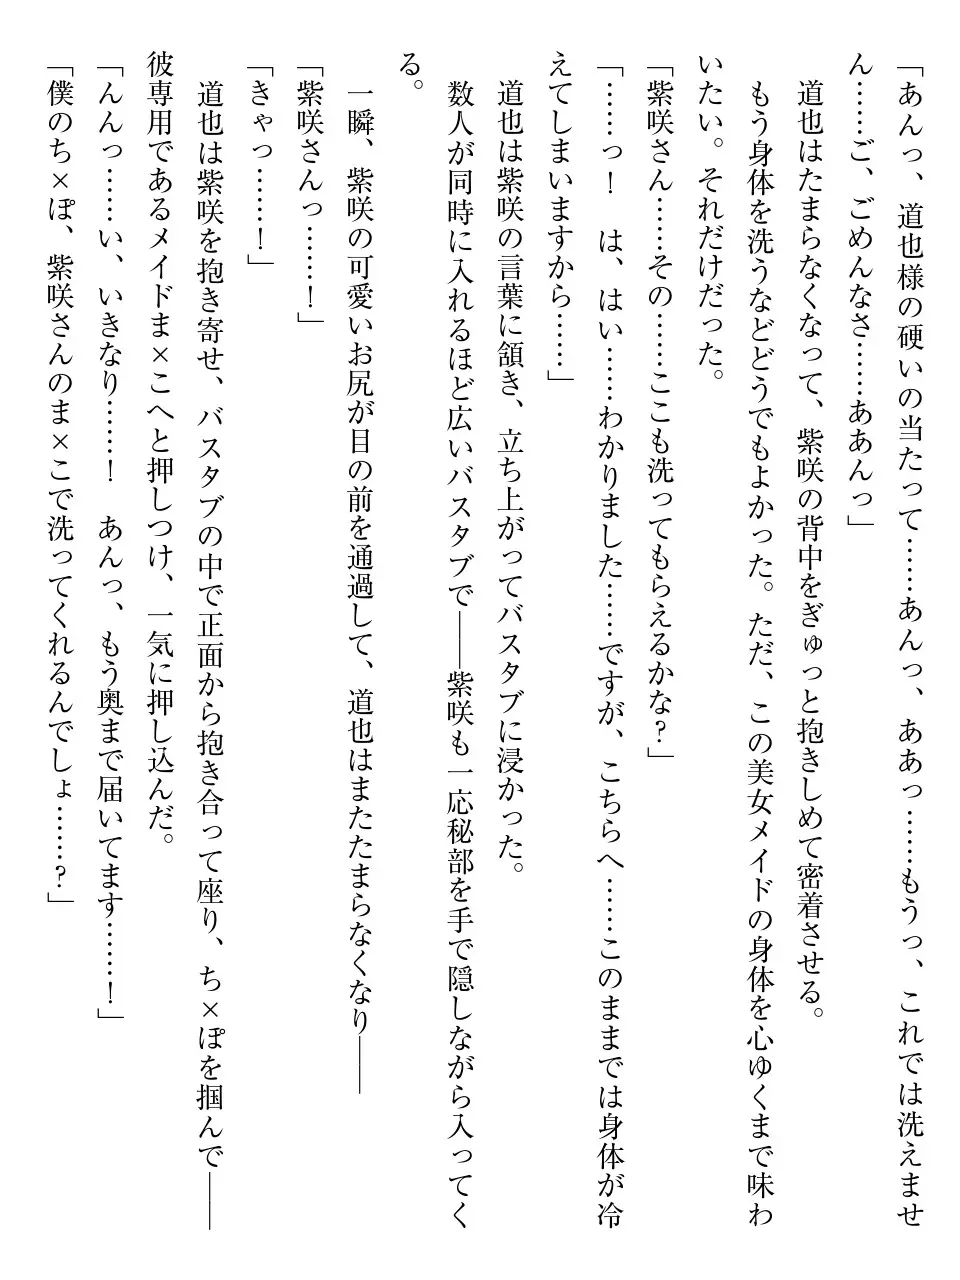 「あんっ、道也様の硬いの当たって……あんっ、ああっ……もうっ、これでは洗えませ
ん……ご、ごめんなさ……ああんっ」
　道也はたまらなくなって、紫咲の背中をぎゅっと抱きしめて密着させる。
　もう身体を洗うなどどうでもよかった。ただ、この美女メイドの身体を心ゆくまで味わ
いたい。それだけだった。
「紫咲さん……その……ここも洗ってもらえるかな？」
「……っ！　は、はい……わかりました……ですが、こちらへ……このままでは身体が冷
えてしまいますから……」
　道也は紫咲の言葉に頷き、立ち上がってバスタブに浸かった。
　数人が同時に入れるほど広いバスタブで――紫咲も一応秘部を手で隠しながら入ってく
る。
　一瞬、紫咲の可愛いお尻が目の前を通過して、道也はまたたまらなくなり――
「紫咲さんっ……！」
「きゃっ……！」
　道也は紫咲を抱き寄せ、バスタブの中で正面から抱き合って座り、ち×ぽを掴んで――
彼専用であるメイドま×こへと押しつけ、一気に押し込んだ。
「んんっ……い、いきなり……！　あんっ、もう奥まで届いてます……！」
「僕のち×ぽ、紫咲さんのま×こで洗ってくれるんでしょ……？」